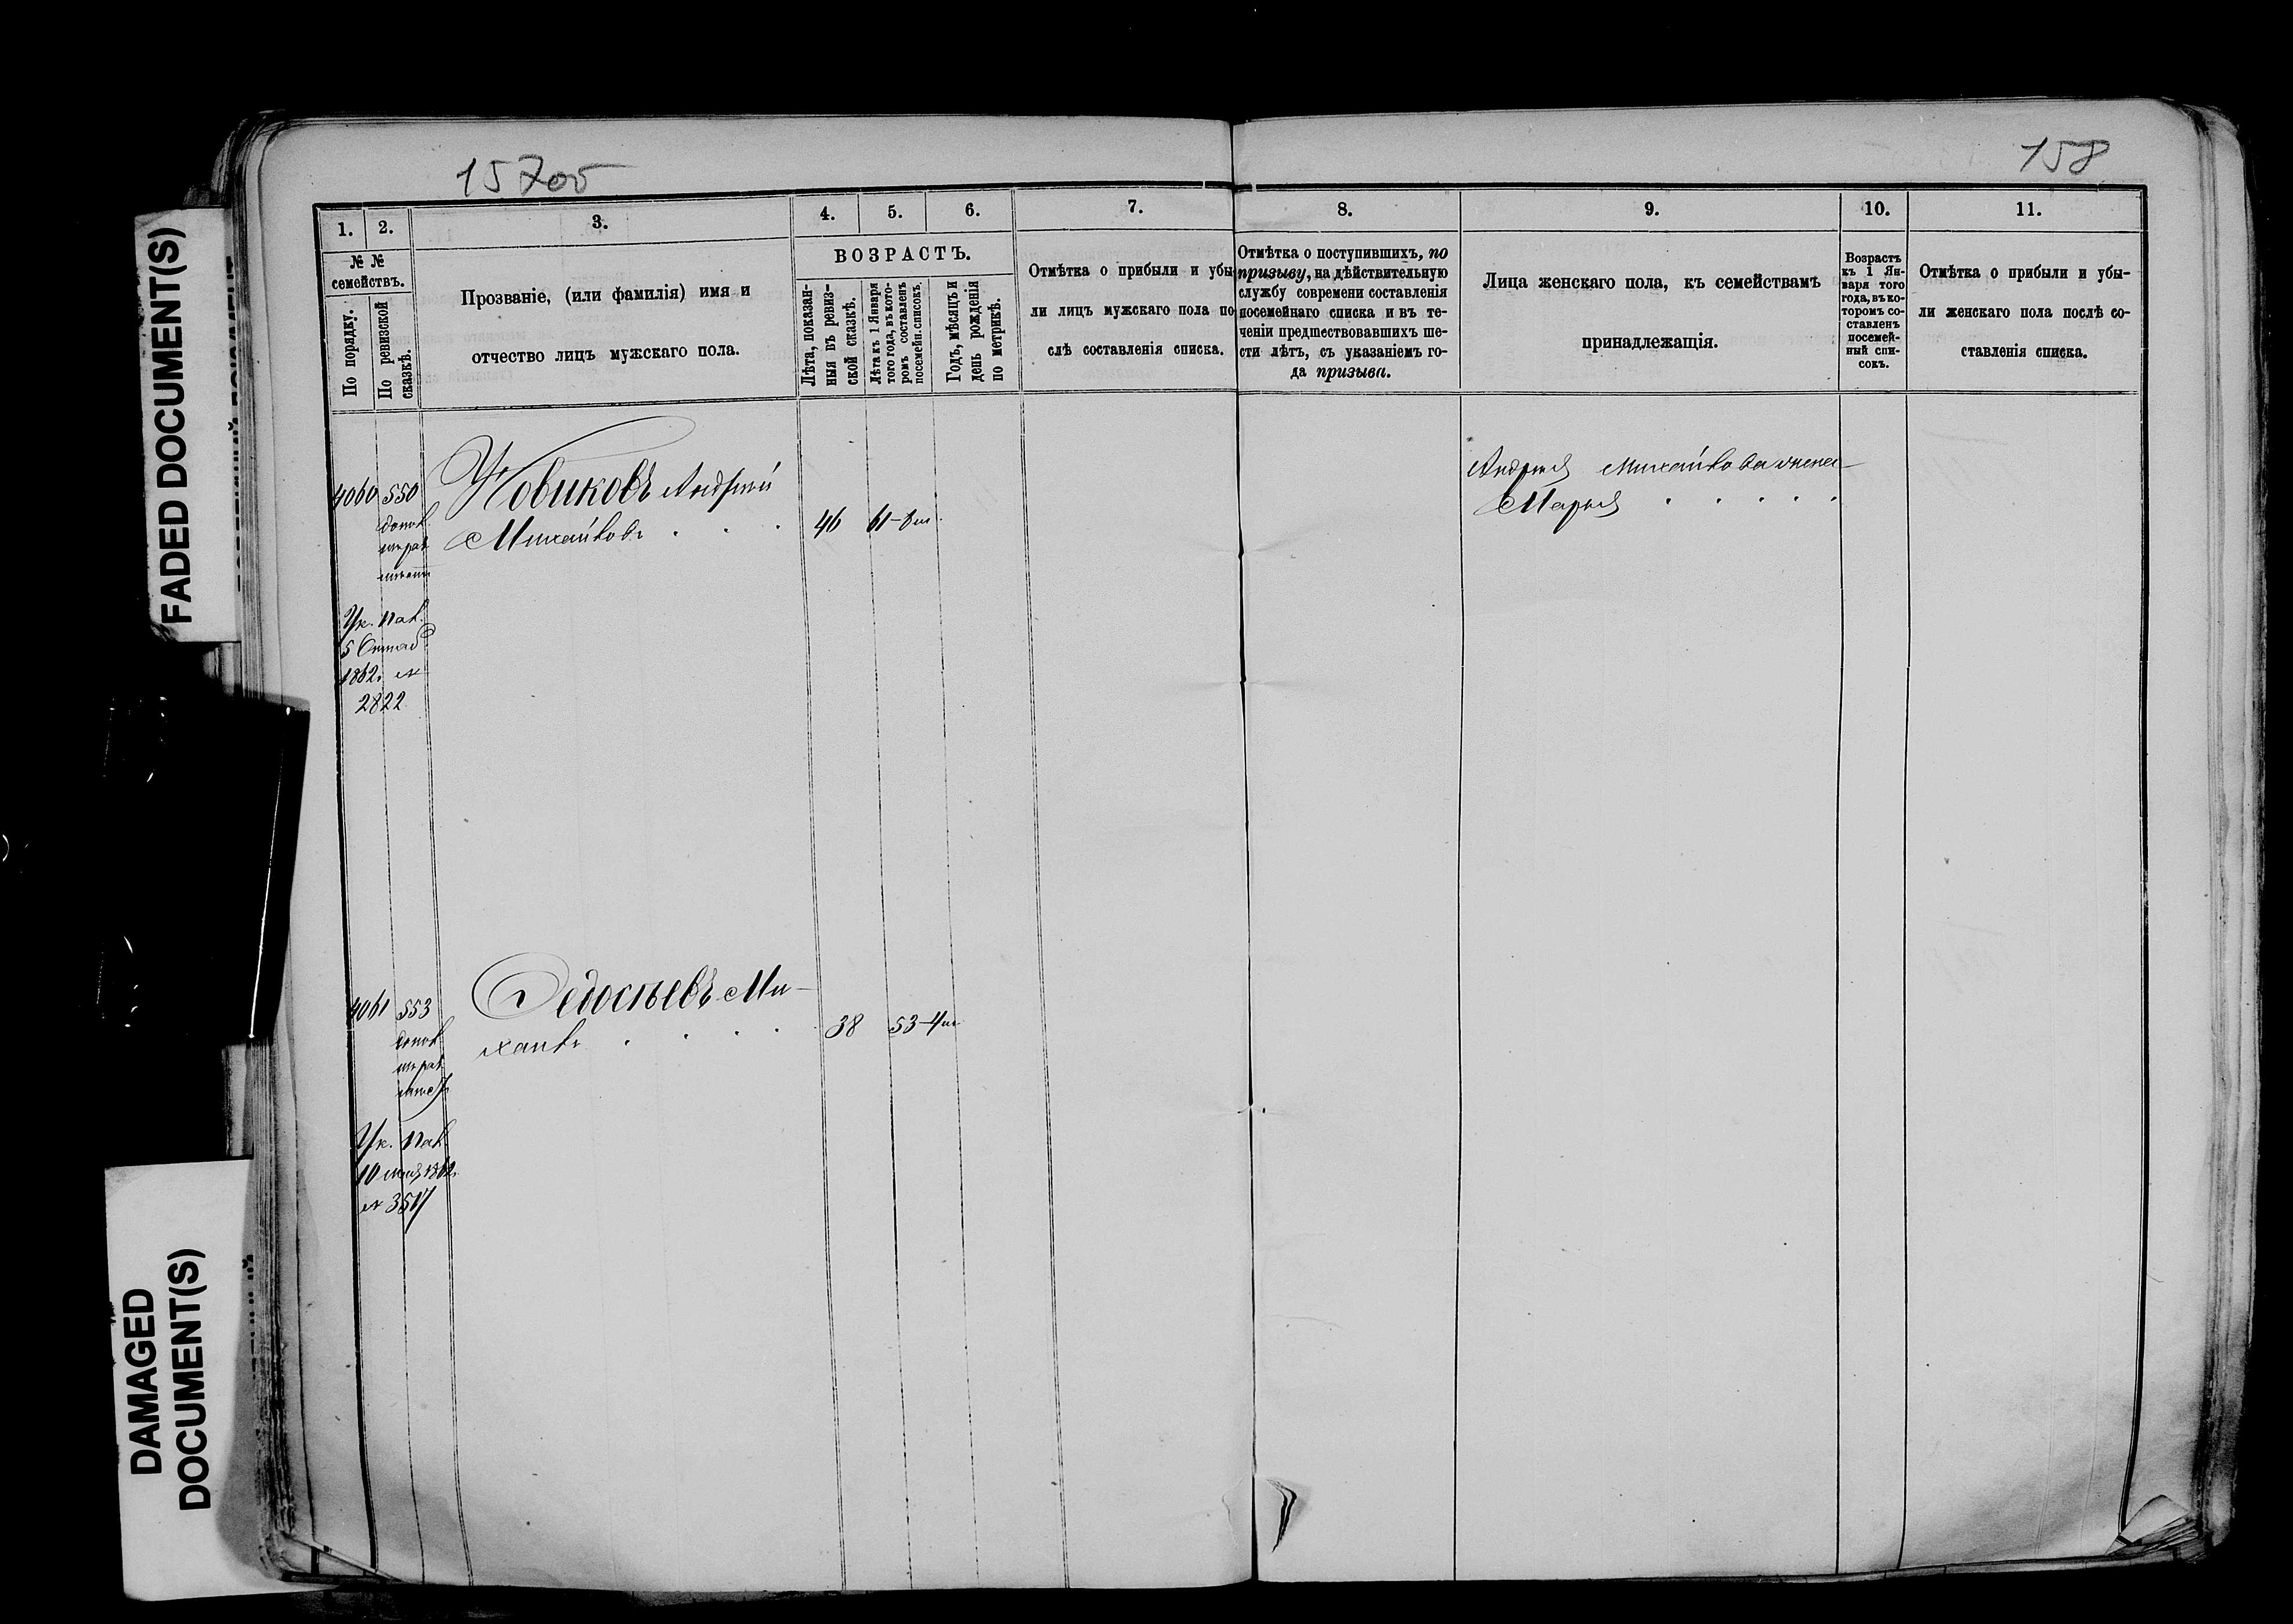 15700
158
FADED DOCUMENT(S)
DAMAGED
DOCUMENT(S)
1.
2.
3.
4.
5.
6.
7.
8.
9.
10.
11.
№ №
семействъ.
По порядку.
По ревизской
сказкѣ.
Прозваніе, (или фамилія) имя и
отчество лицъ мужскаго пола.
ВОЗРАСТЪ.
Лѣта, показан-
ныя въ ревиз-
ской сказкѣ.
Лѣта къ 1 Января
того года, въ кото-
ромъ составленъ
посемейн. списокъ.
Годъ, мѣсяцъ и
день рожденія
по метрикѣ.
Отмѣтка о прибыли и убы
ли лицъ мужскаго пола по
слѣ составленія списка.
Отмѣтка о поступившихъ, по
призыву, на дѣйствительную
службу современи составленія
посемейнаго списка и въ те-
ченіи предшествовавшихъ ше-
сти лѣтъ, съ указаніемъ го-
да призыва.
Лица женскаго пола, къ семействамъ
принадлежащія.
Возрастъ
къ 1 Ян-
варя того
года, въ ко-
торомъ со-
ставленъ
посемей-
ный спи-
сокъ.
Отмѣтка о прибыли и убы-
ли женскаго пола послѣ со-
ставленія списка.
4060 550 Новиковъ Андрей
Михайловъ 46 61
Ук. Пал.
5
1862
2822
Андрея Михайлова жена
Марья
4061 553 Федосѣевъ Ми-
хаилъ 38 53
Ук. Пал.
10 1862
3517